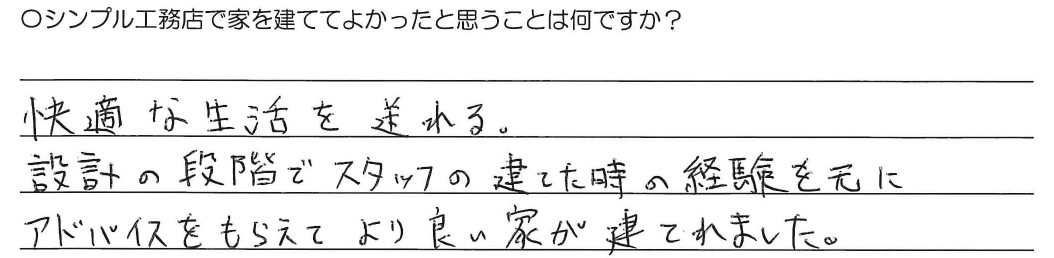 〇シンプル工務店で家を建ててよかったと思うことは何ですか？
快適な生活を送れる。
設計の段階でスタッフの建てた時の経験を元に
アドバイスをもらえてより良い家が建てれました。